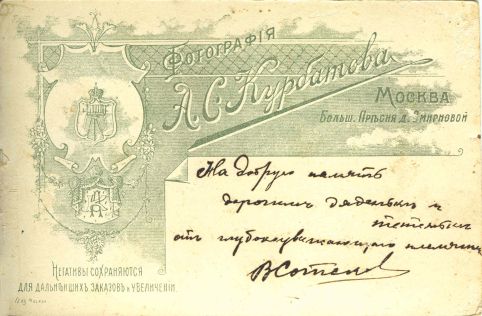 Фотографія
А.С. Курбатова
Москва
Больш. Прѣсня д. Смирновой
На добрую память
дорогимъ дяденькѣ и
тетенькѣ
отъ глубокоуважающаго племянника
Негативы сохраняются
для дальнѣйшихъ заказовъ и увеличеній.